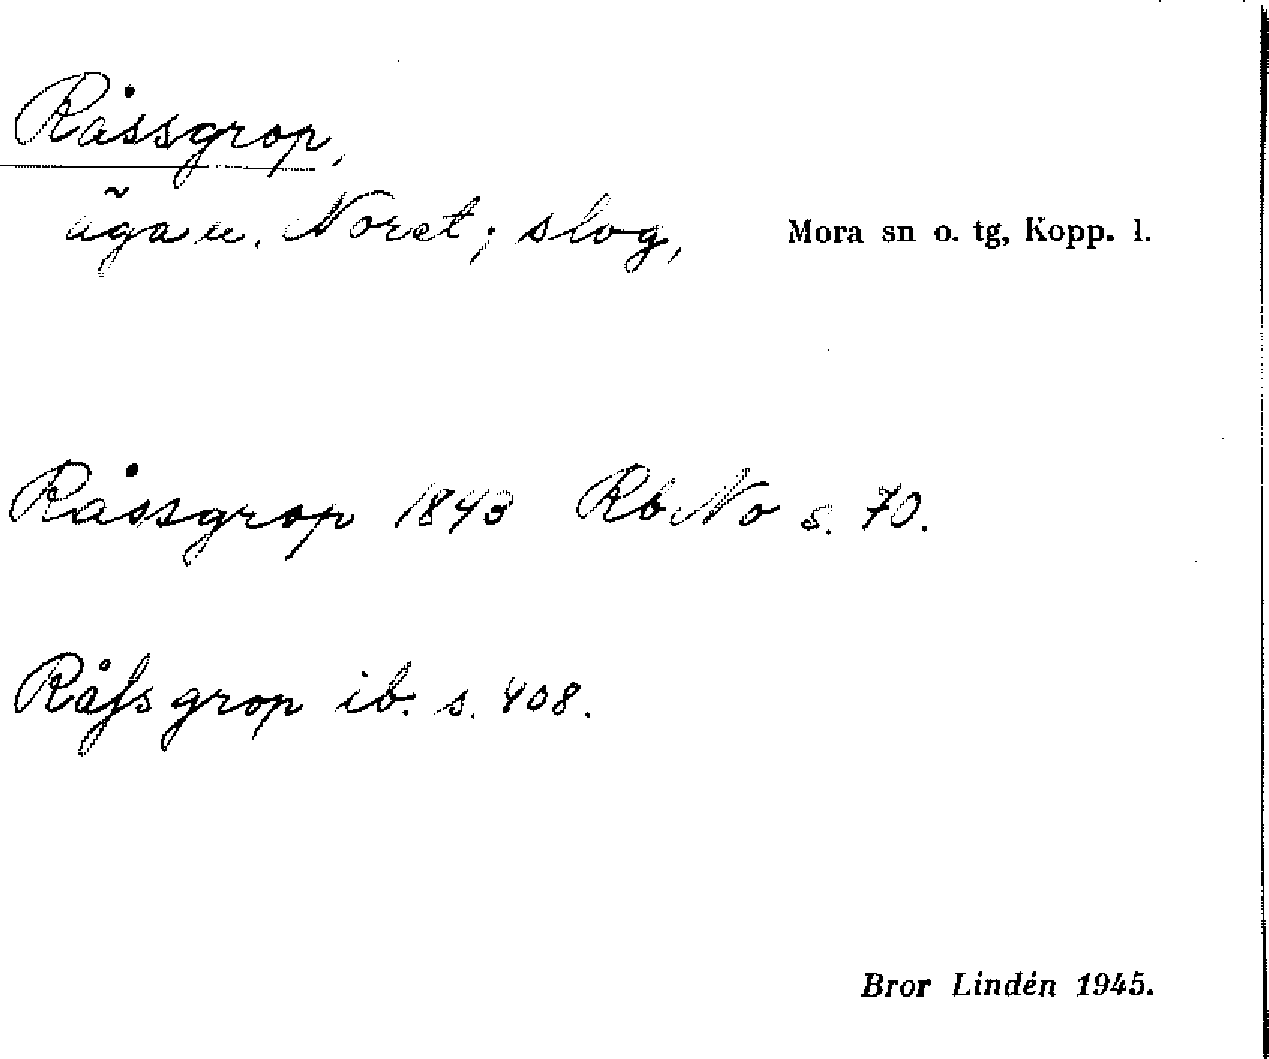 Råssgrop,
äga u. Noret; slog,
Mora sn o. tg, Kopp. l.
Råssgrop 1843 RbNo s. 70.
Råfsgrop ib. s. 408.
Bror Lindén 1945.